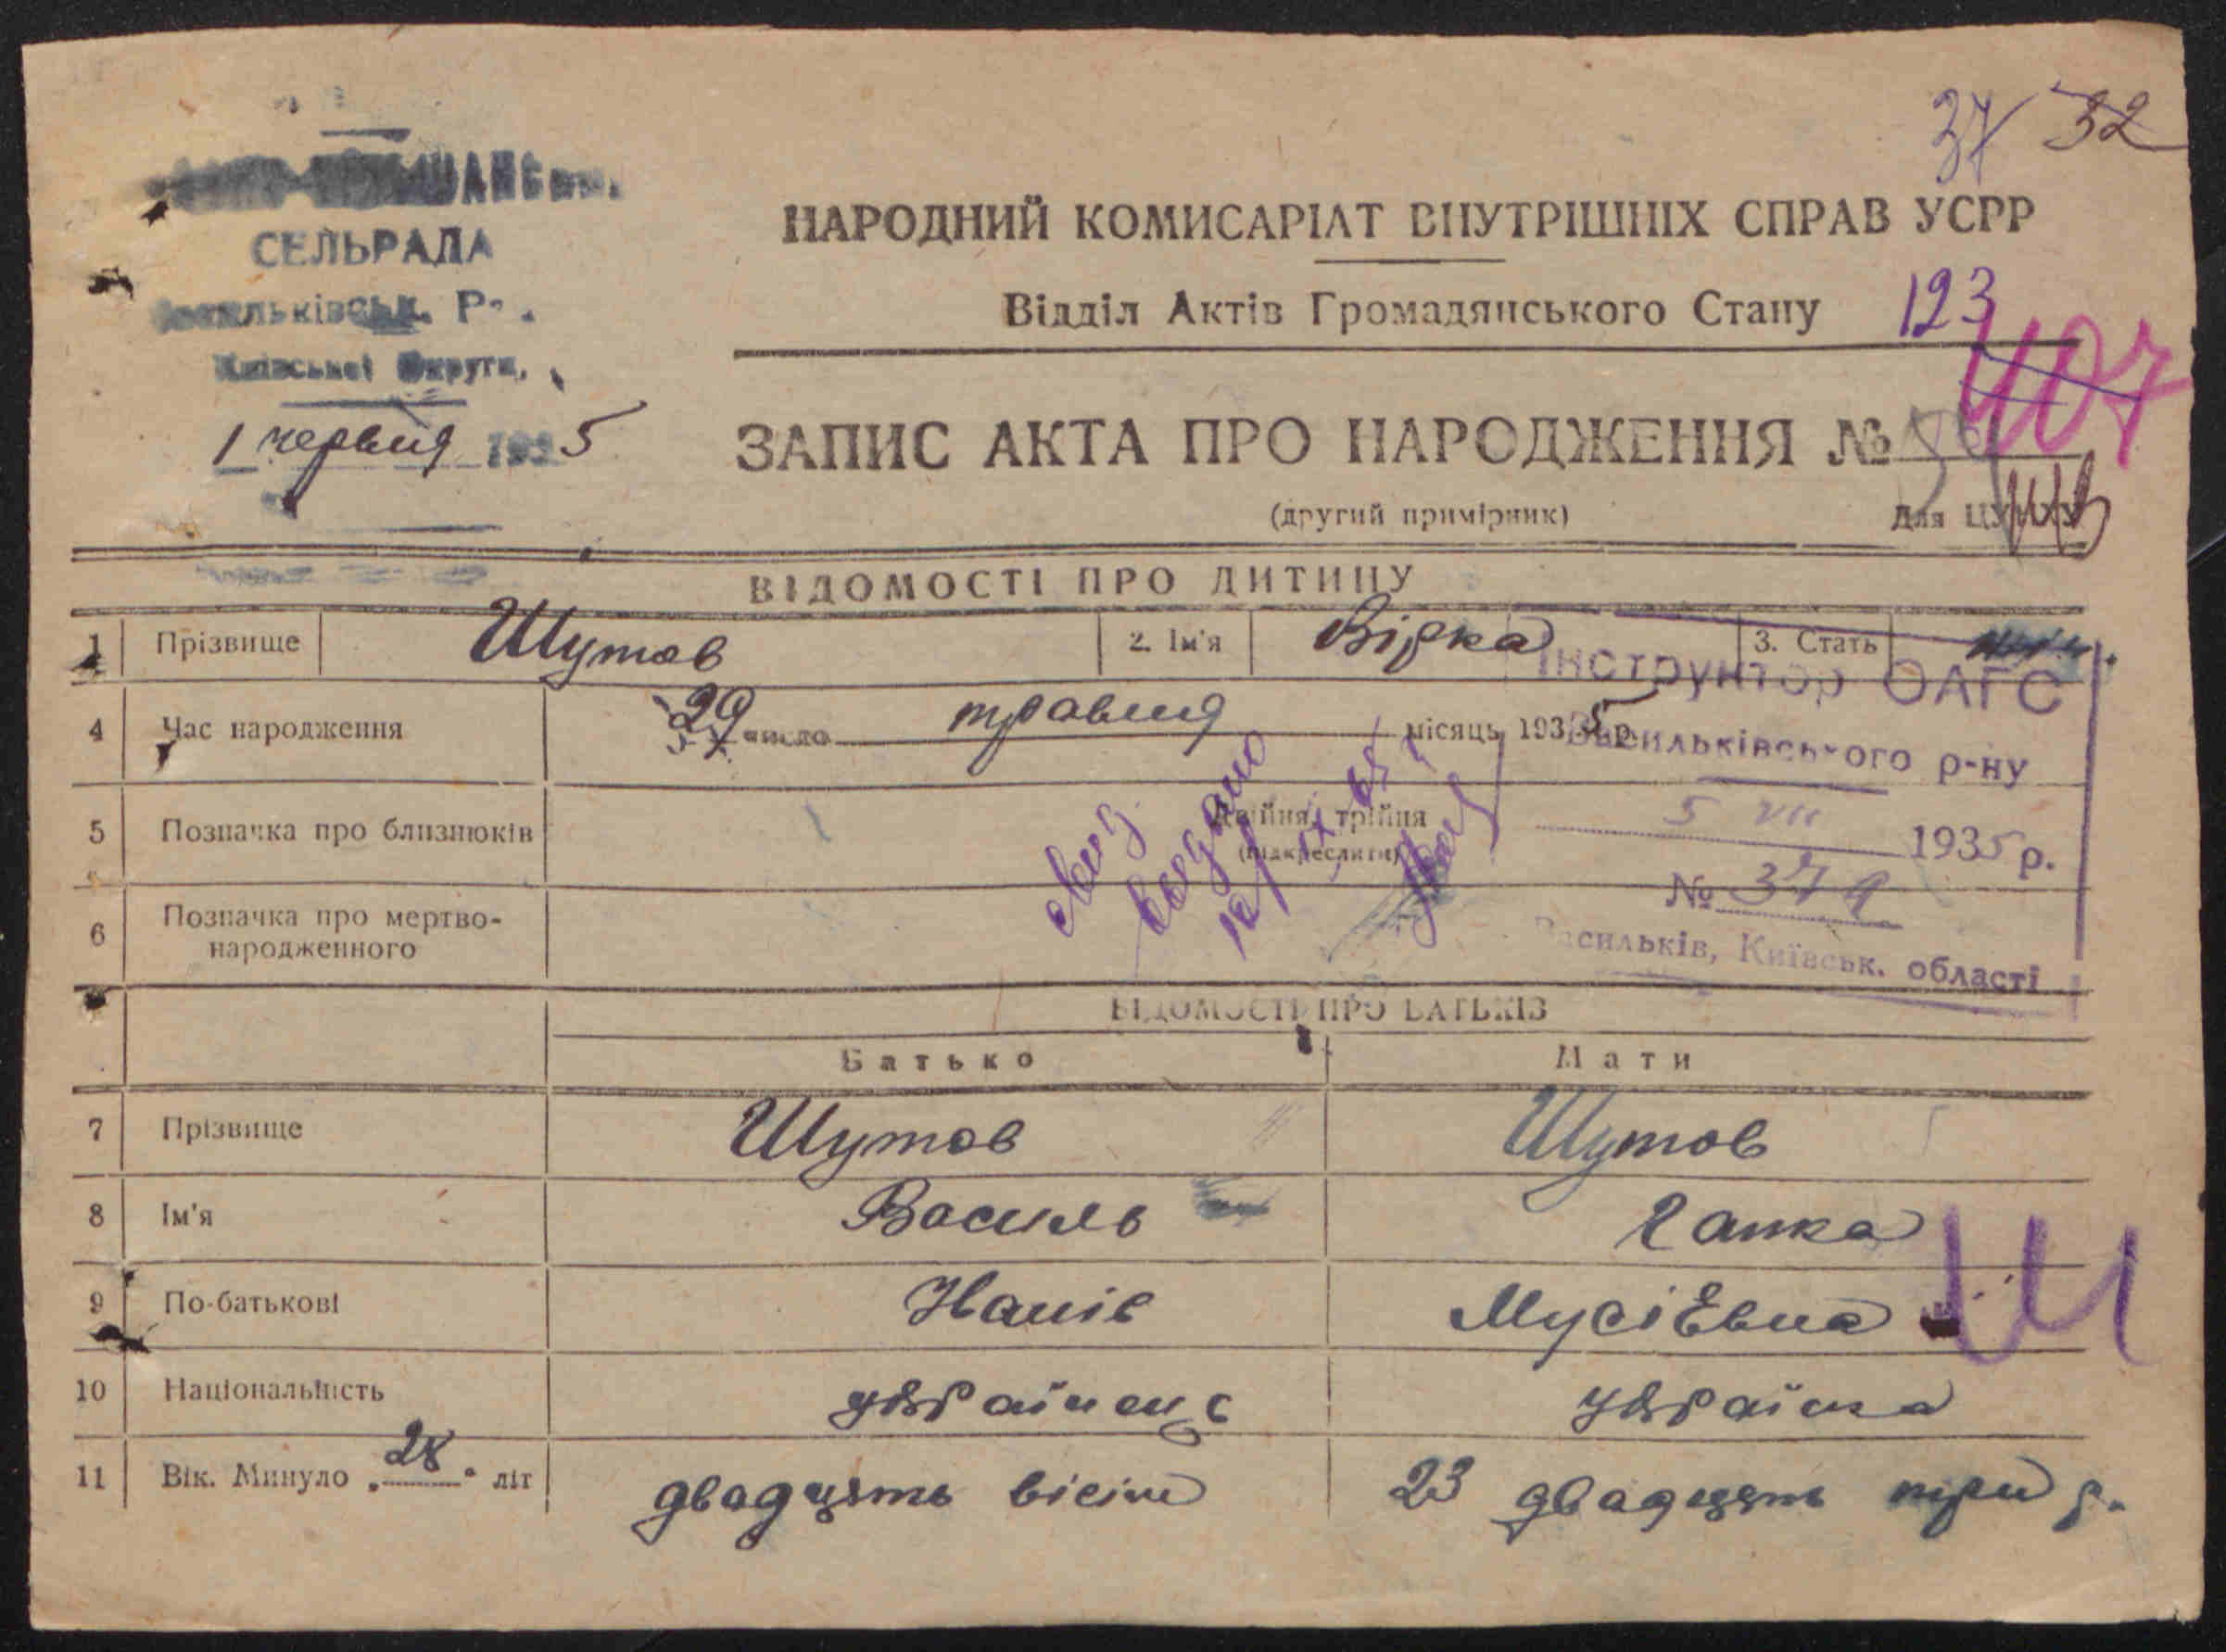 37 32
СЕЛЬРАДА
Київської Округи.
1 червня 1935
НАРОДНИЙ КОМИСАРІАТ ВНУТРІШНІХ СПРАВ УСРР
Відділ Актів Громадянського Стану 123
407
ЗАПИС АКТА ПРО НАРОДЖЕННЯ №
(другий примірник)
Для ЦУНХУ
ВІДОМОСТІ ПРО ДИТИНУ
1 Прізвище Шутов 2. Ім'я Вірка 3. Стать
Інструктор ОАГС
4 Час народження 29 число травня місяць 1935 р.
Васильківського р-ну
5 VII 1935 р.
5 Позначка про близнюків Двійня, трійня
(підкреслити)
№ 379
6 Позначка про мертво-
народженного
Васильків, Київськ. області
ВІДОМОСТІ ПРО БАТЬКІВ
Батько Мати
7 Прізвище Шутов Шутов
8 Ім'я Василь Ганка
9 По-батькові Мусіевна
10 Національність українець українка
11 Вік. Минуло „28“ літ двадцять вісім 23 двадцять три р.